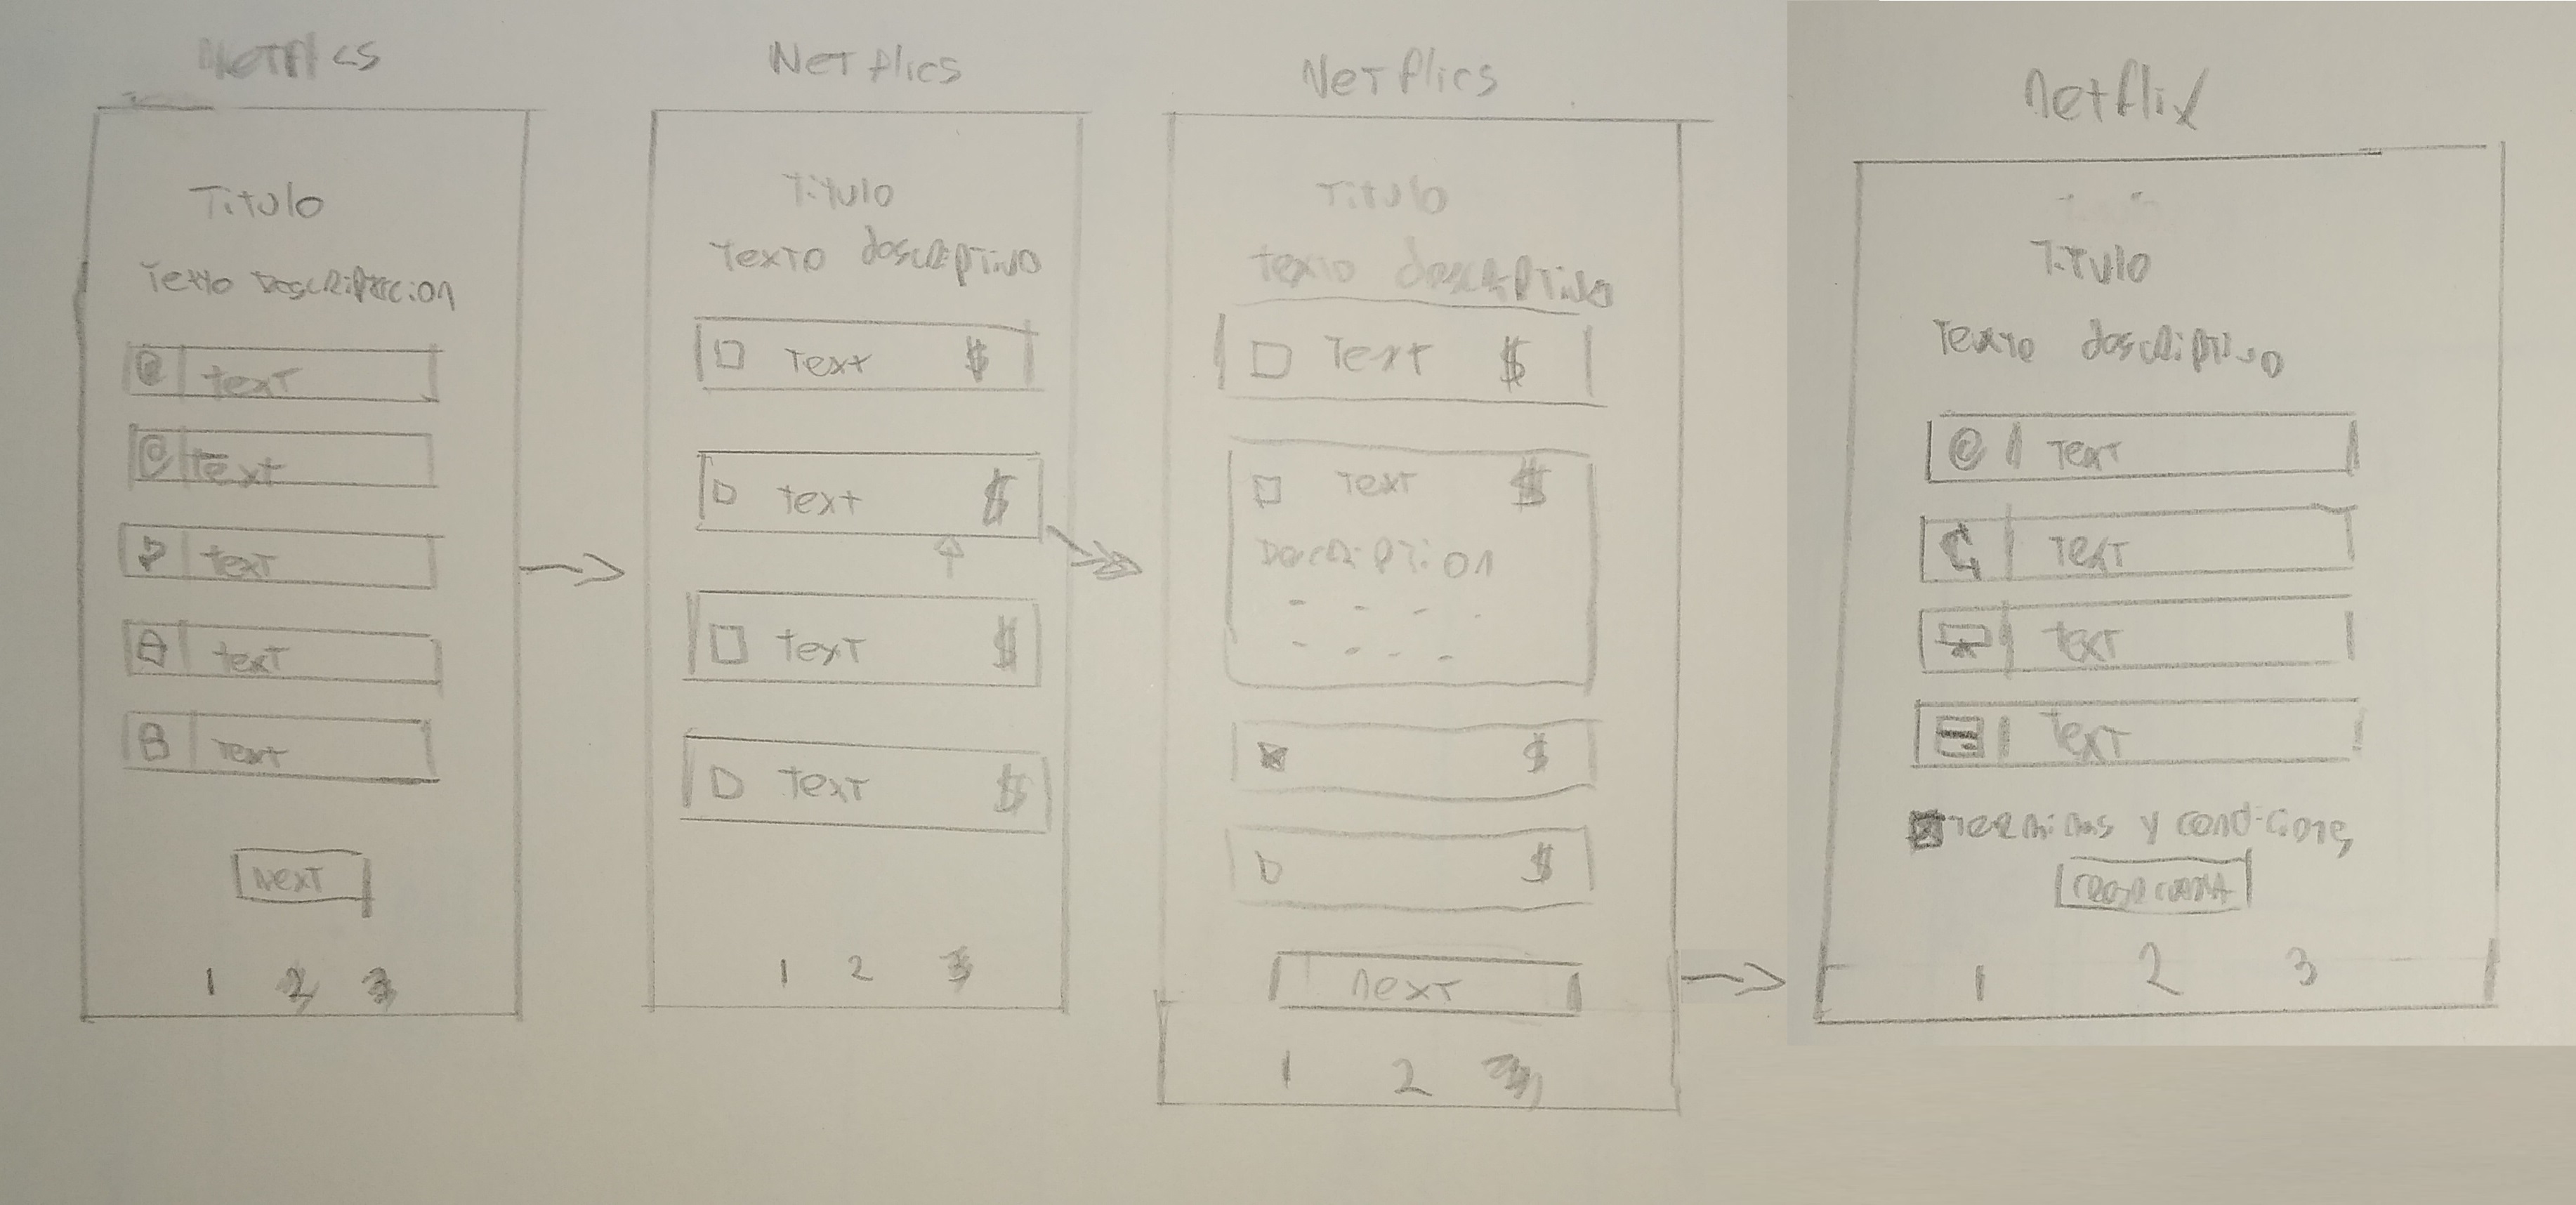 Netflcs
Titulo
Texto Descripccion
text
text
text
text
text
Next
1 2 3
Netflics
Titulo
Texto descriptivo
Text $
text $
text $
text $
1 2 3
Netflics
Titulo
texto descriptivo
Text $
Text $
Description
$
$
next
1 2 3
netflix
Titulo
Texto descriptivo
Text
Text
text
text
terminos y condiciones
1 2 3